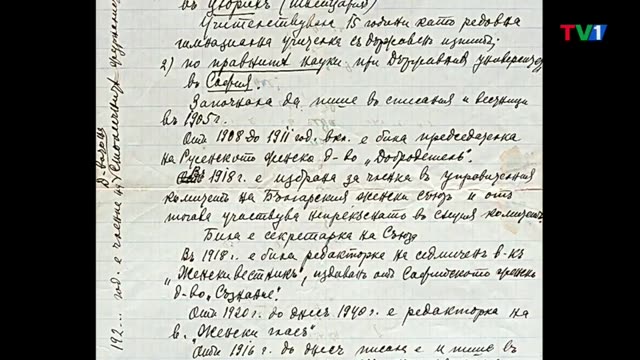 TV1
въ Цюрихъ (Швейцария)
Учителствувала 15 години като редовна
гимназиална учителка съ държавенъ изпитъ;
2) по правнитѣ науки при Държавния университетъ
въ София.
Започнала да пише въ списания и вестници
въ 1905 г.
Отъ 1908 до 1911 год. вкл. е била председателка
на Русенското женско д-во „Добродетель".
Въ 1918 г. е избрана за членка въ управителния
комитетъ на Българския женски съюзъ и отъ
тогава участвува непрекѫснато въ същия комитетъ.
Била е секретарка на Съюза
Въ 1918 г. е била редакторка на седмиченъ в-къ
„Женски вестникъ", издаванъ отъ Софийското женско
д-во „Съзнание".
Отъ 1920 г. до днесъ 1940 г. е редакторка на
в. „Женски гласъ"
Отъ 1916 г. до днесъ писала е и пише въ
192... год. е членка на